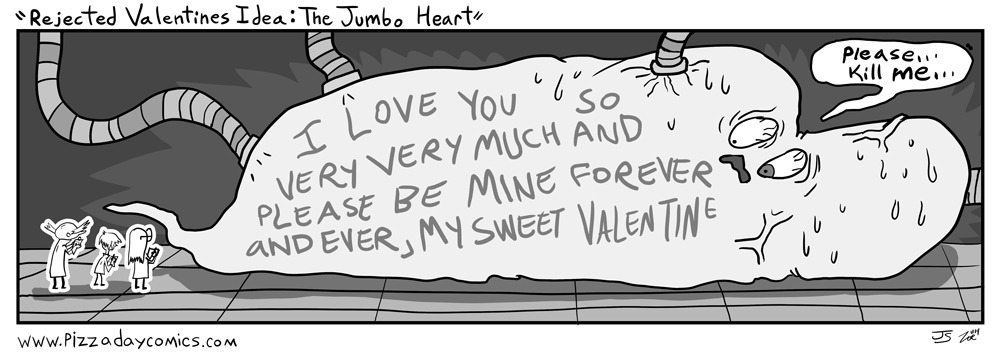 "Rejected Valentines Idea: The Jumbo Heart"
Please...
Kill me...
I LOVE YOU SO
VERY VERY MUCH AND
PLEASE BE MINE FOREVER
AND EVER, MY SWEET VALENTINE
www.Pizzadaycomics.com
JS